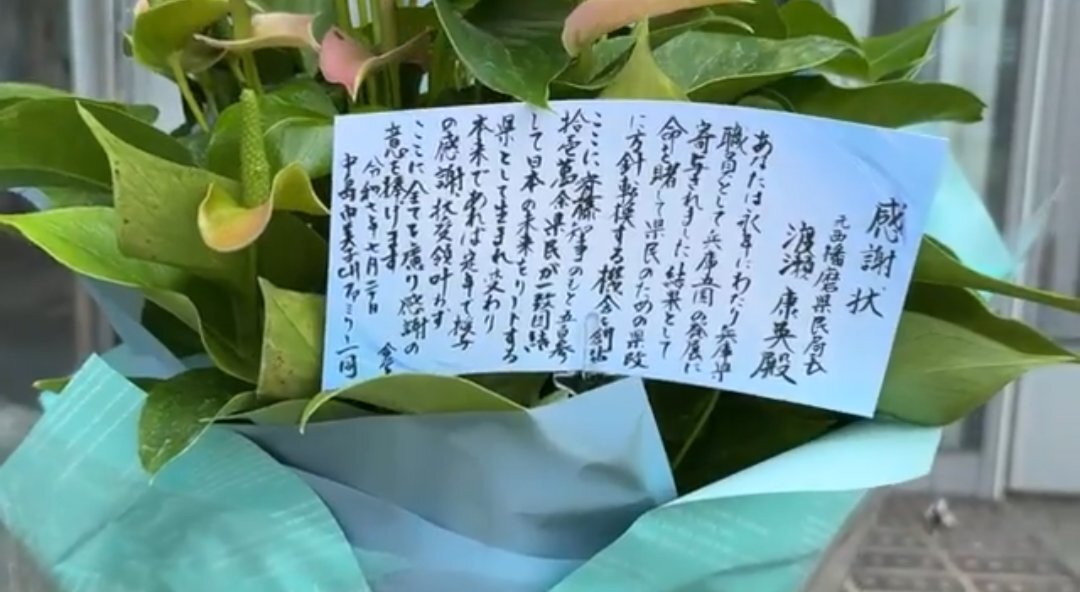 感謝状
元西播磨県民局長
渡瀬 康英殿
あなたは永年にわたり兵庫県
職員として兵庫五国の発展に
寄与されました結果として
命を賭して県民のための県政
に方針転換する機会創出
ここに斉藤知事のもと五百参
拾壱萬余県民が一致団結
して日本の未来をリードする
県として生まれ変わり
本来であれば定年で授与
の感謝状受領叶わず
ここに全てを慮り感謝の
意を捧げます
令和七年七月二日
中島
ファミリー一同